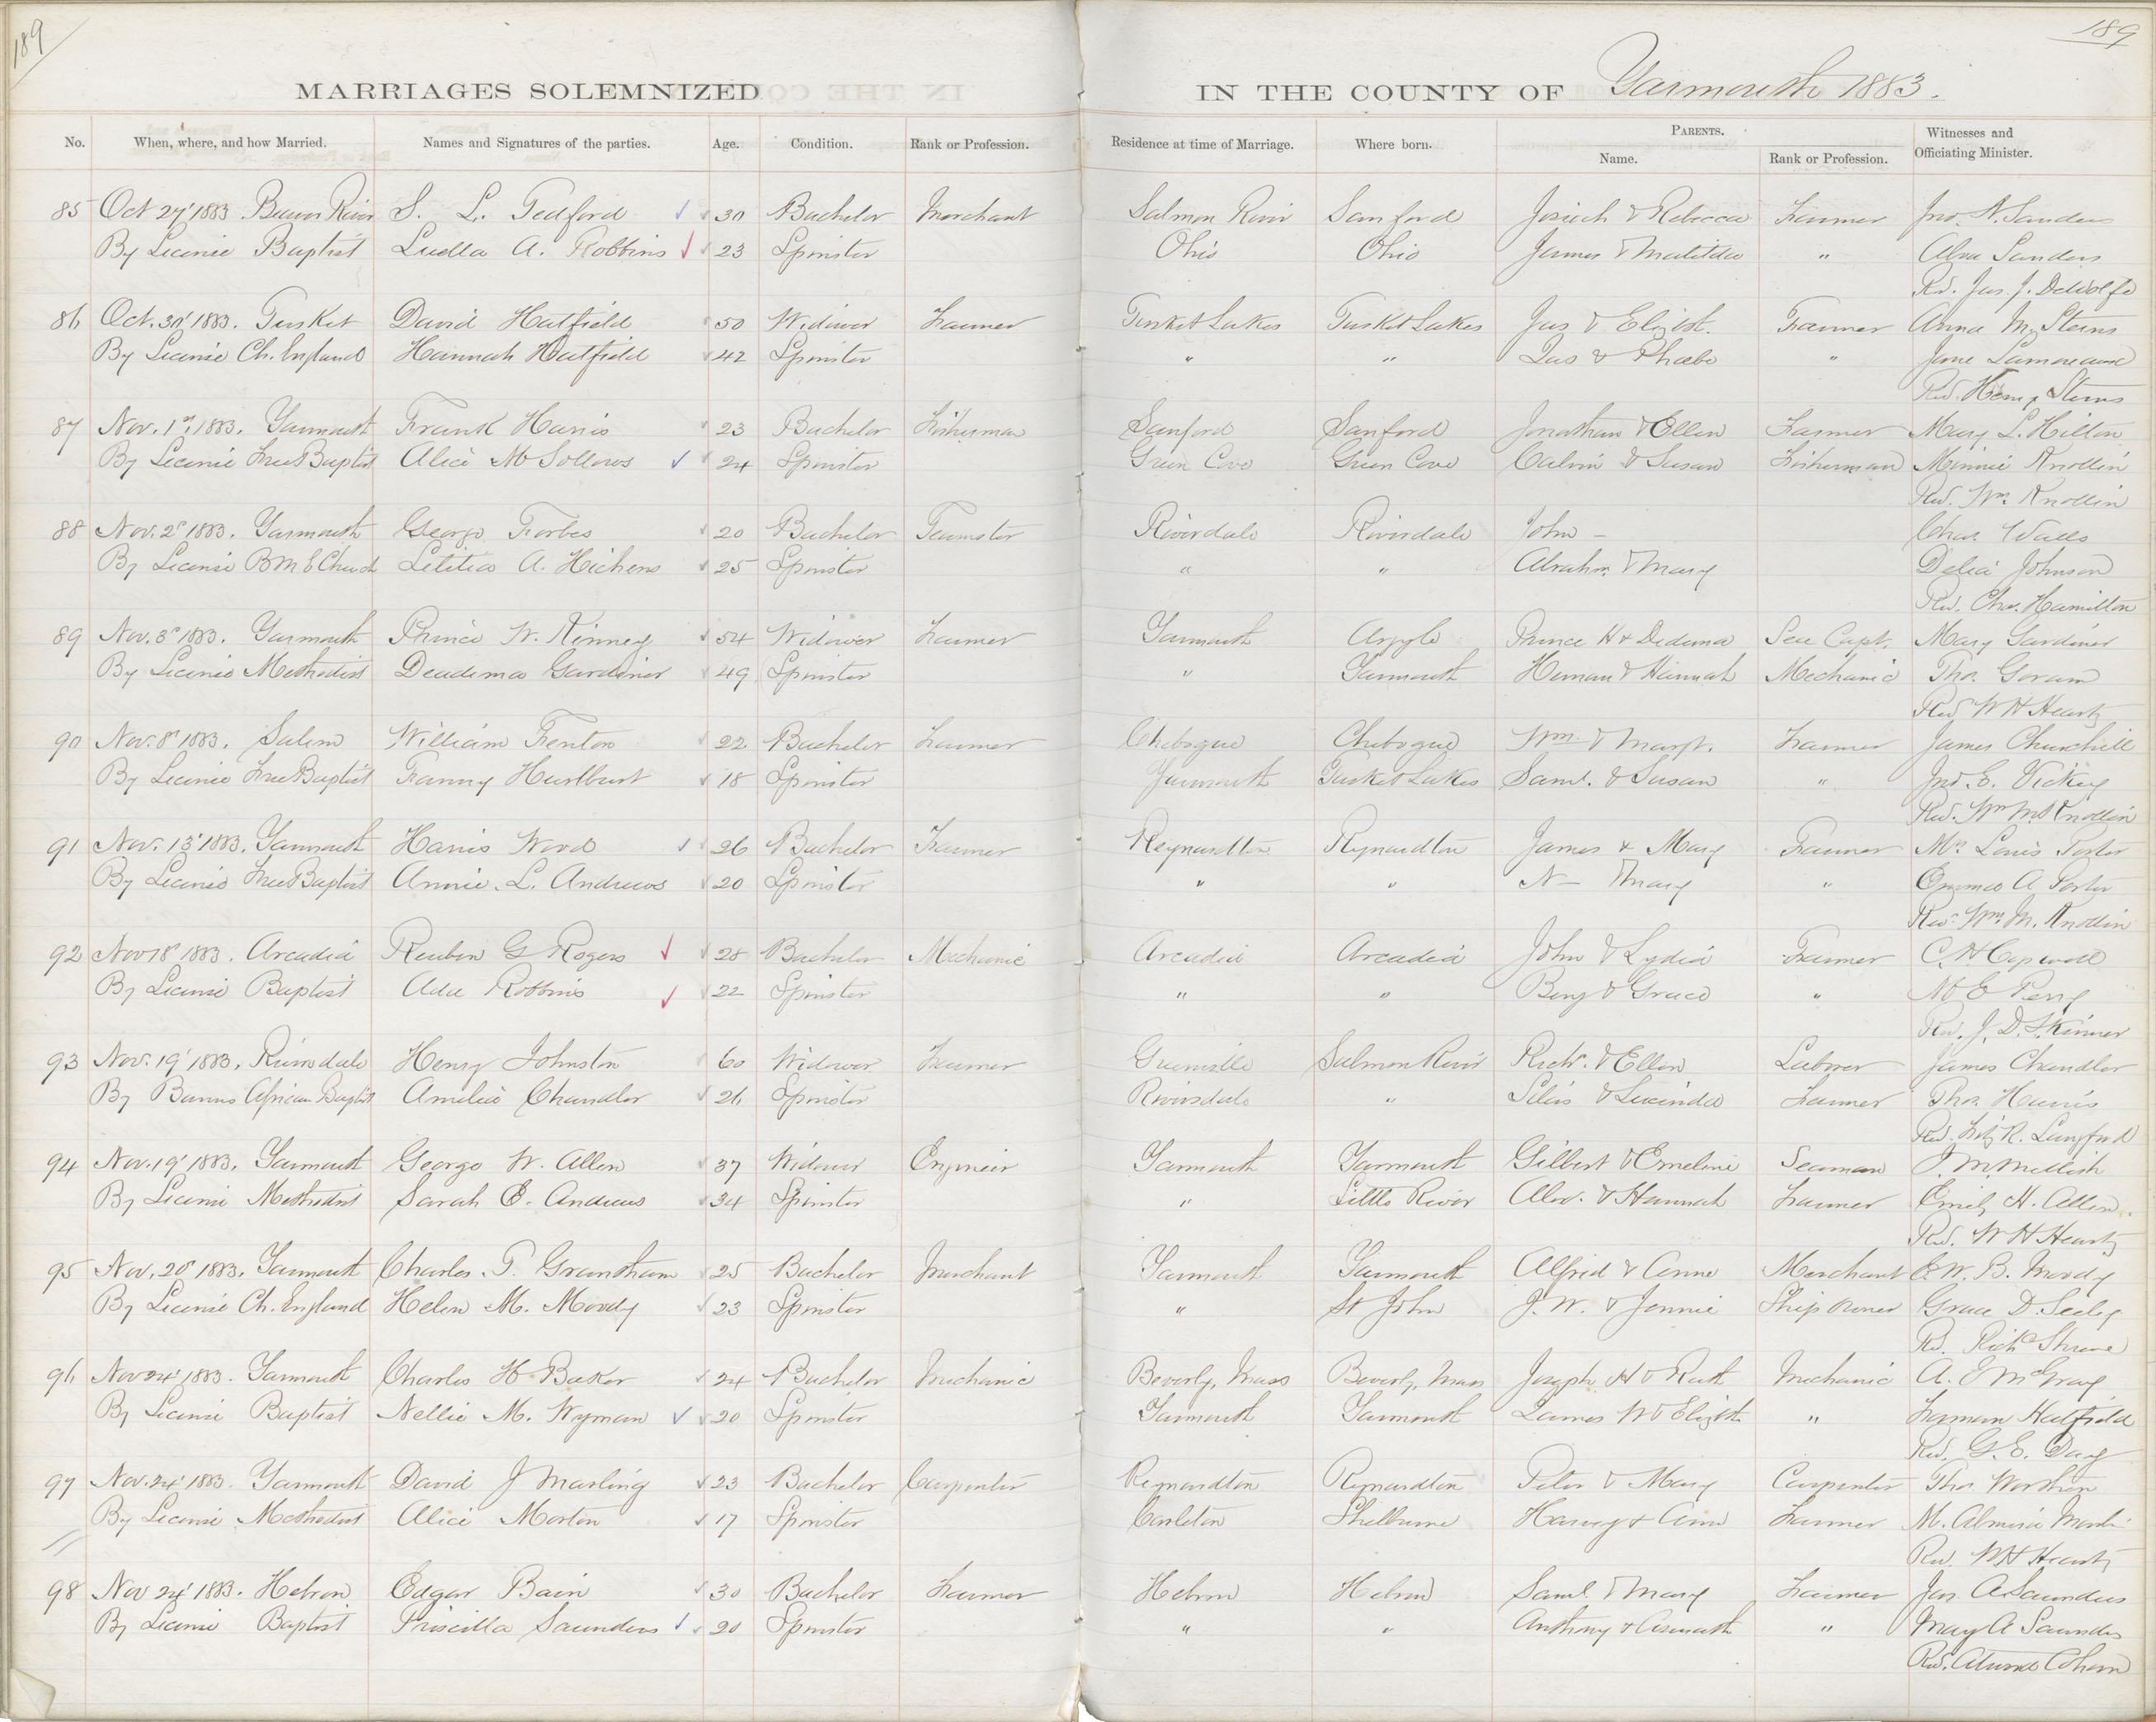 189
189
MARRIAGES SOLEMNIZED IN THE COUNTY OF Yarmouth 1883.
No. When, where, and how Married. Names and Signatures of the parties. Age. Condition. Rank or Profession. Residence at time of Marriage. Where born. PARENTS. Name. Rank or Profession. Witnesses and Officiating Minister.
85 Oct 27' 1883. Beaver River S. L. Tedford 30 Bachelor Merchant Salmon River Sanford Josiah & Rebecca Farmer Jno. N. Sanders
By License Baptist Luella A. Robbins 23 Spinster Ohio Ohio James & Matilda " Alva Sanders
Rd. Jas. J. DeWolfe
86 Oct. 30' 1883. Tusket David Hatfield 50 Widower Farmer Tusket Lakes Tusket Lakes Jas & Elizbt. Farmer Anna M. Sterns
By License Ch. England Hannah Hatfield 42 Spinster " " Jas & Phoebe " Jane Lamoreaux
Rev. Henry Sterns
87 Nov. 1st, 1883. Yarmouth Frank Harris 23 Bachelor Fisherman Sanford Sanford Jonathan & Ellen Farmer Mary L. Hilton
By License Free Baptist Alice M Sollows 24 Spinster Green Cove Green Cove Calvin & Susan Fisherman Minnie Knollin
Rev. Wm. Knollin
88 Nov. 2d 1883. Yarmouth George Forbes 20 Bachelor Teamster Riverdale Riverdale John – Chas. Walls
By License B M E Church Letitia A. Hichens 25 Spinster " " Abrahm. & Mary Delia Johnson
Rev. Chas. Hamilton
89 Nov. 3d 1883. Yarmouth Prince W. Kinney 54 Widower Farmer Yarmouth Argyle Prince H & Dedema Sea Capt. Mary Gardiner
By License Methodist Deadema Gardiner 49 Spinster " Yarmouth Heman & Hannah Mechanic Thos. Goram
Rev W H Heartz
90 Nov. 8' 1883. Salem William Fenton 22 Bachelor Farmer Chebogue Chebogue Wm. & Margt. Farmer James Churchill
By License Free Baptist Fanny Hurlburt 18 Spinster Yarmouth Tusket Lakes Saml. & Susan " Jno. E. Vickery
Rev. Wm M. Knollin
91 Nov. 13' 1883. Yarmouth Harris Wood 26 Bachelor Farmer Reynardton Reynardton James & Mary Farmer Mrs Louis Porter
By License Free Baptist Annie. L. Andrews 20 Spinster " " N – & Mary " Emma A Porter
Rev. Wm. M. Knollin
92 Nov 18' 1883. Arcadia Reuben G Rogers 28 Bachelor Mechanic Arcadia Arcadia John & Lydia Farmer C. H Capwell
By License Baptist Ada Robbins 22 Spinster " " Benj & Grace " E Perry
Rev. J. D. Skinner
93 Nov. 19' 1883. Riversdale Henry Johnston 60 Widower Farmer Greenville Salmon River Richd. & Ellen Laborer James Chandler
By Banns African Baptist Amelia Chandler 26 Spinster Riversdale " Silas & Lucinda Farmer Thos. Harris
Rev. R. Langford
94 Nov. 19' 1883. Yarmouth George W. Allen 37 Widower Engineer Yarmouth Yarmouth Gilbert & Emeline Seaman J. M. Mellish
By License Methodist Sarah E. Andrews 34 Spinster " Little River Alex. & Hannah Farmer Emily H. Allen.
Rev. W H Heartz
95 Nov. 20' 1883. Yarmouth Charles. T. Grantham 25 Bachelor Merchant Yarmouth Yarmouth Alfred & Anne Merchant E. W. B. Moody
By License Ch. England Helen M. Moody 23 Spinster " St John J. W. & Jennie Ship Owner Grace D. Seeley
Rd. Richd Shreve
96 Nov 24' 1883. Yarmouth Charles H Baker 24 Bachelor Mechanic Beverly, Mass Beverly, Mass Joseph H & Ruth Mechanic A. E McGray
By License Baptist Nellie M. Wyman 20 Spinster Yarmouth Yarmouth James W & Elizbt. " Forman Hatfield
Rev. G. E. Day
97 Nov. 24' 1883. Yarmouth David J Marling 23 Bachelor Carpenter Reynardton Reynardton Peter & Mary Carpenter Thos.
By License Methodist Alice Morton 17 Spinster Carleton Shelburne Harvey & Ann Farmer M. Almira
Rev. W H Heartz
98 Nov 24' 1883. Hebron Edgar Bain 30 Bachelor Farmer Hebron Hebron Saml & Mary Farmer Jas. A. Saunders
By License Baptist Priscilla Saunders 20 Spinster " " Anthony & Asenath " May A Saunders
Rev. Cohoon